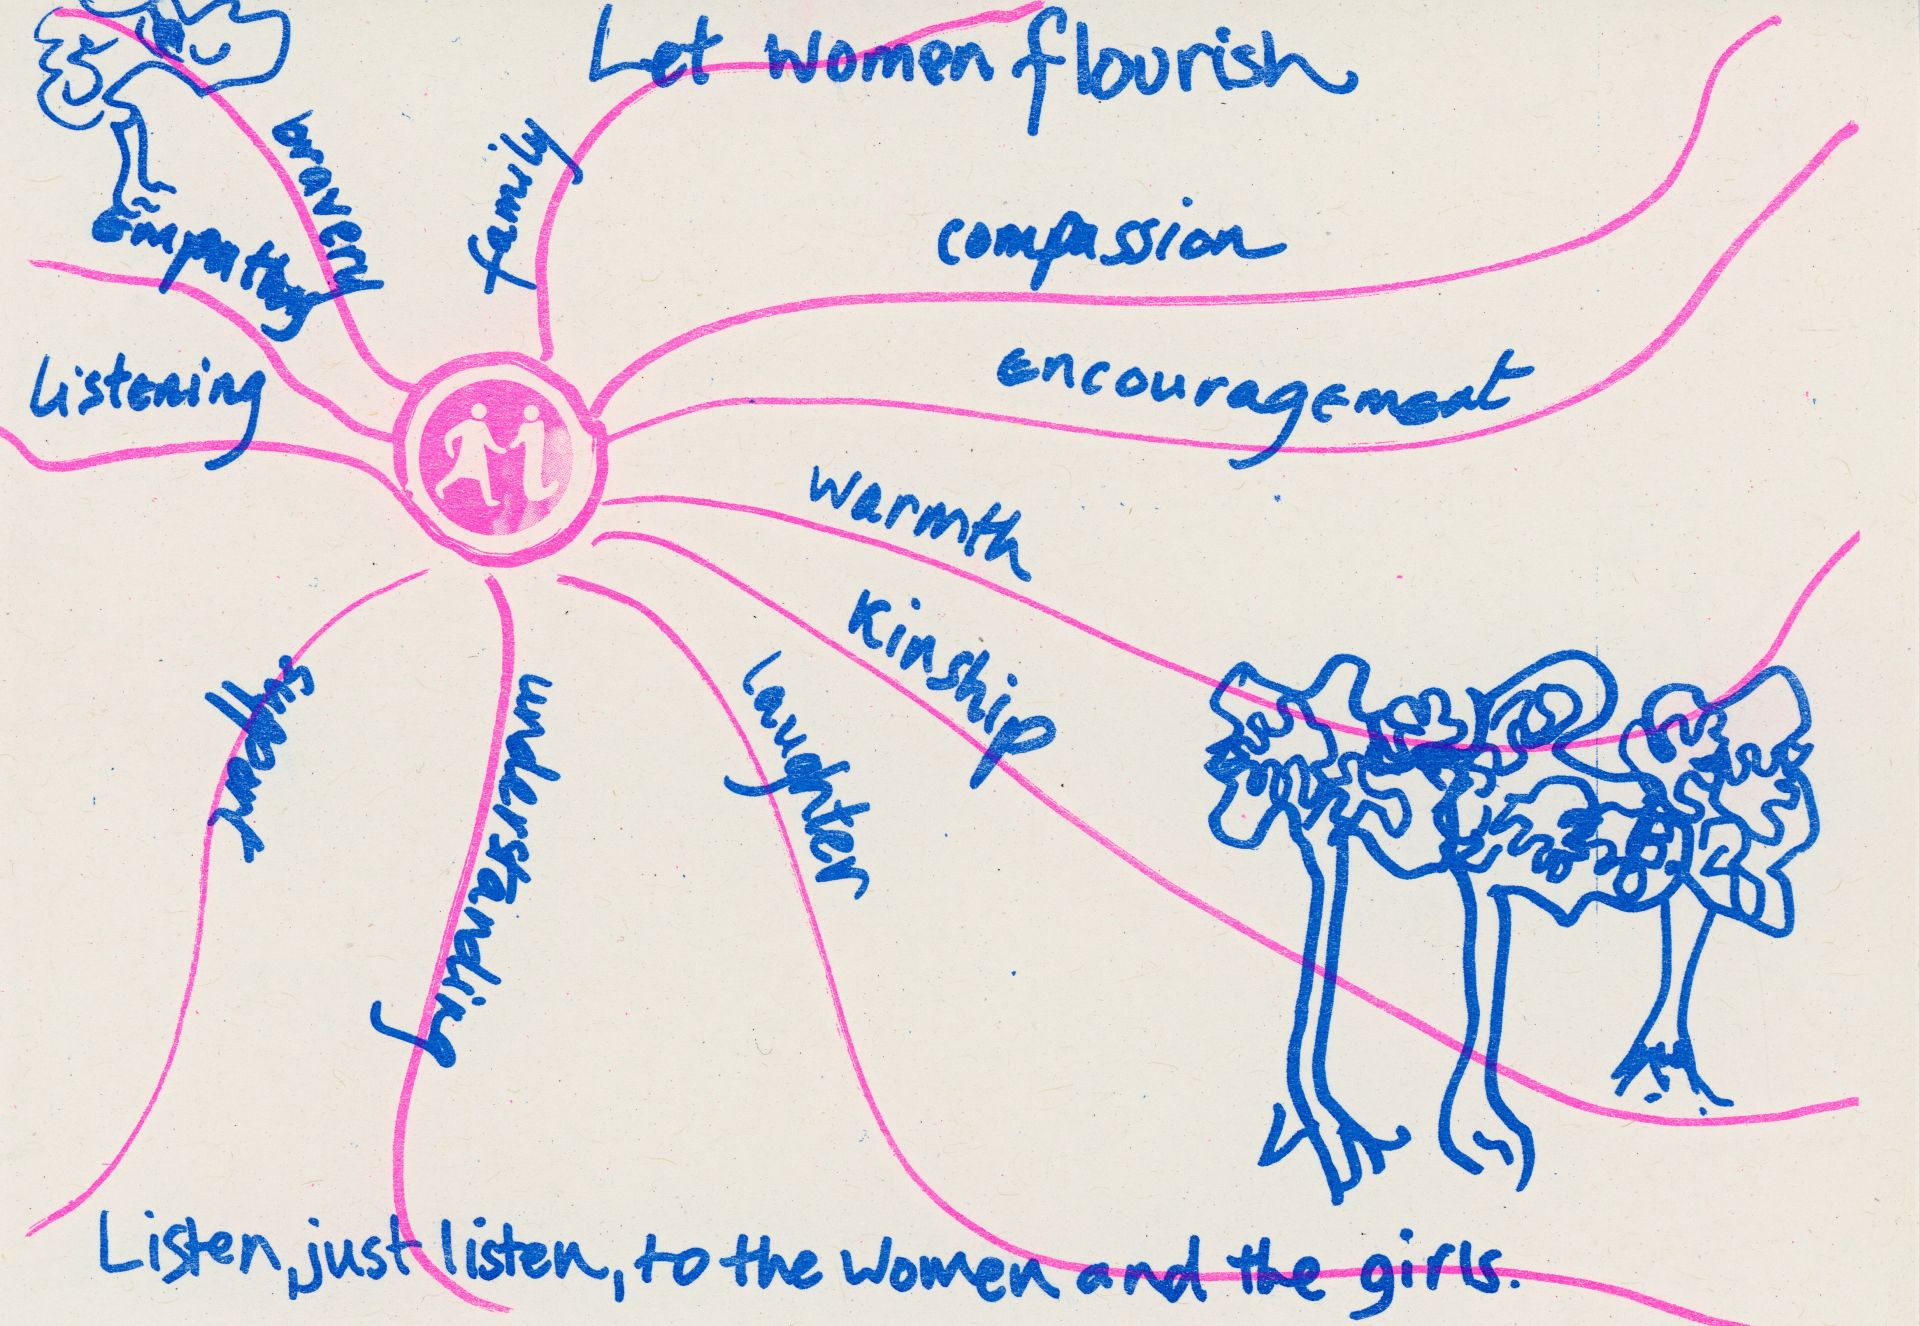 Let women flourish
bravery
family
empathy
compassion
Listening
encouragement
warmth
Kinship
support
understanding
Laughter
Listen, just listen, to the women and the girls.